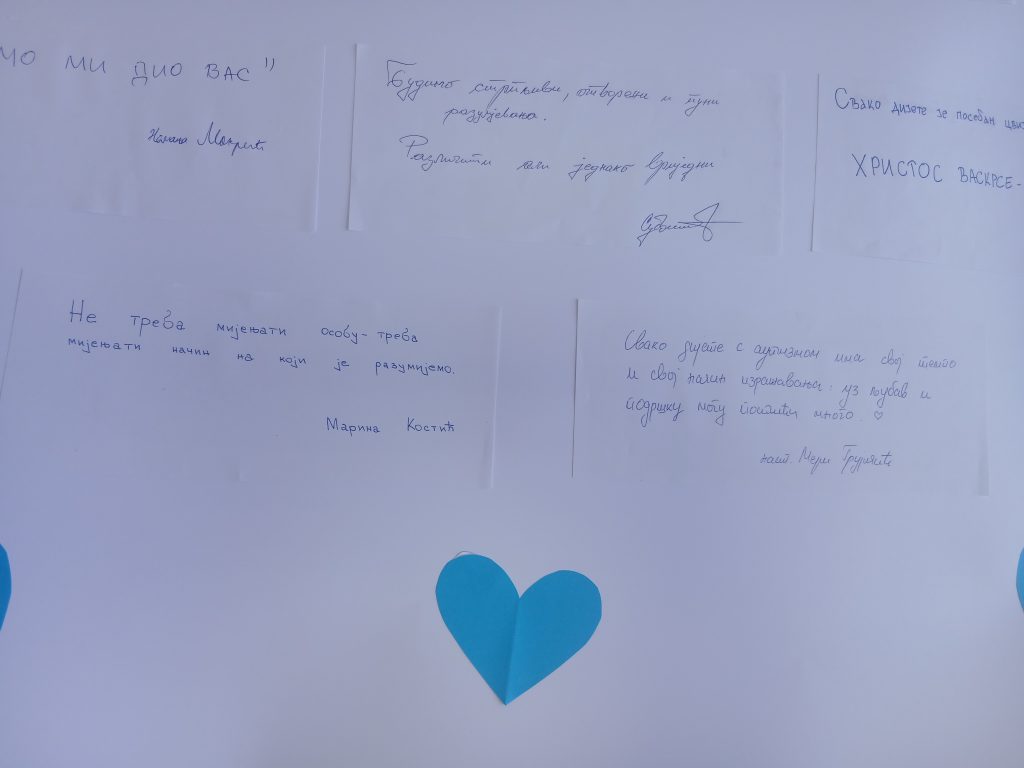 МО МИ ДИО ВАС"
Будимо стрпљиви, отворени и пуни
разумјевања.
Различити али једнако вриједни
Свако дијете је посебан цвит
ХРИСТОС ВАСКРСЕ-
Не треба мијењати особу-треба
мијењати начин на који је разумијемо.
Марина Костић
Свако дијете с аутизмом има свој темпо
и свој начин изражавања: уз љубав и
подршку могу постићи много. ♡
наст. Мери